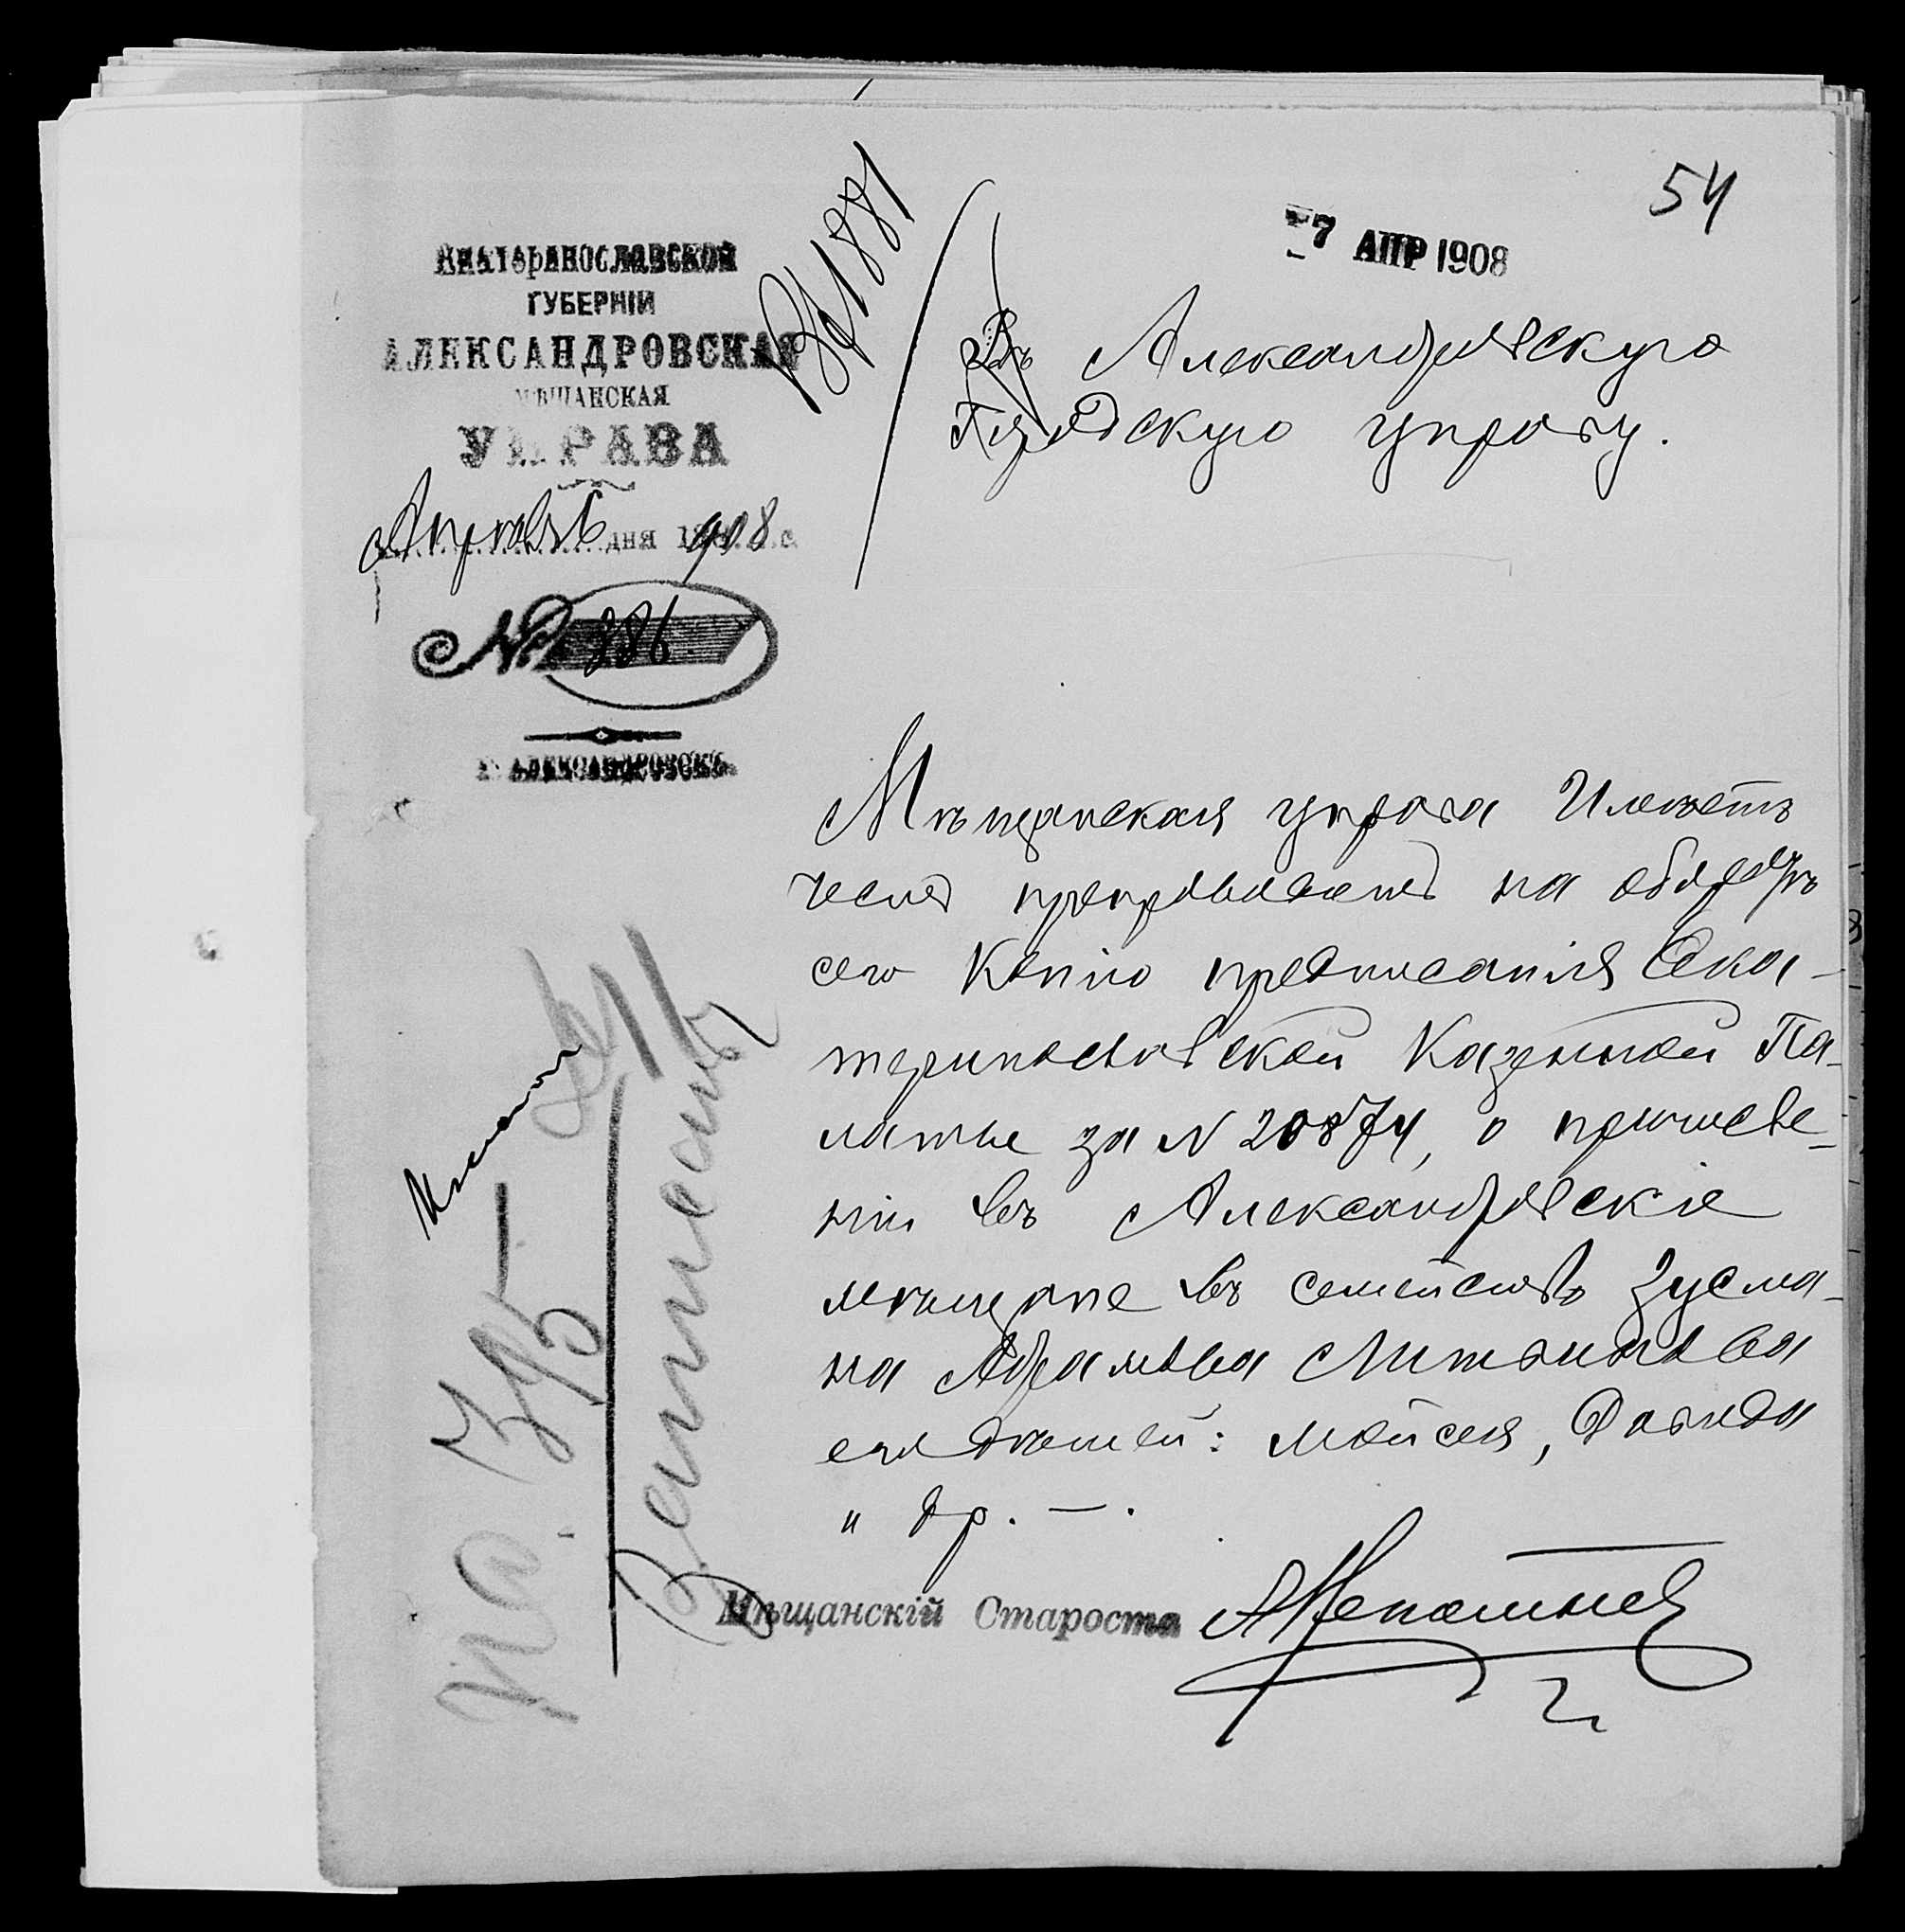 54
7 АПР 1908
Вх 1881
ЕКАТЕРИНОСЛАВСКОЙ
ГУБЕРНІИ
АЛЕКСАНДРОВСКАЯ
МѢЩАНСКАЯ
УПРАВА
Апрѣля 6 дня 1908 г.
№ 286
Г. АЛЕКСАНДРОВСКЪ
Въ Александровскую
Городскую управу.
Мѣщанская управа Имѣетъ
честь препроводить на оборотѣ
сего Копію предписанія Ека-
теринославской Казенной Па-
латы за N 20874, о причисле-
ніи въ Александровскіе
мѣщане въ семейство Зусма-
на Абрамова Литвинова
его дѣтей: Мойсея, Давида
и др. — .
Мѣщанскій Староста
на 395